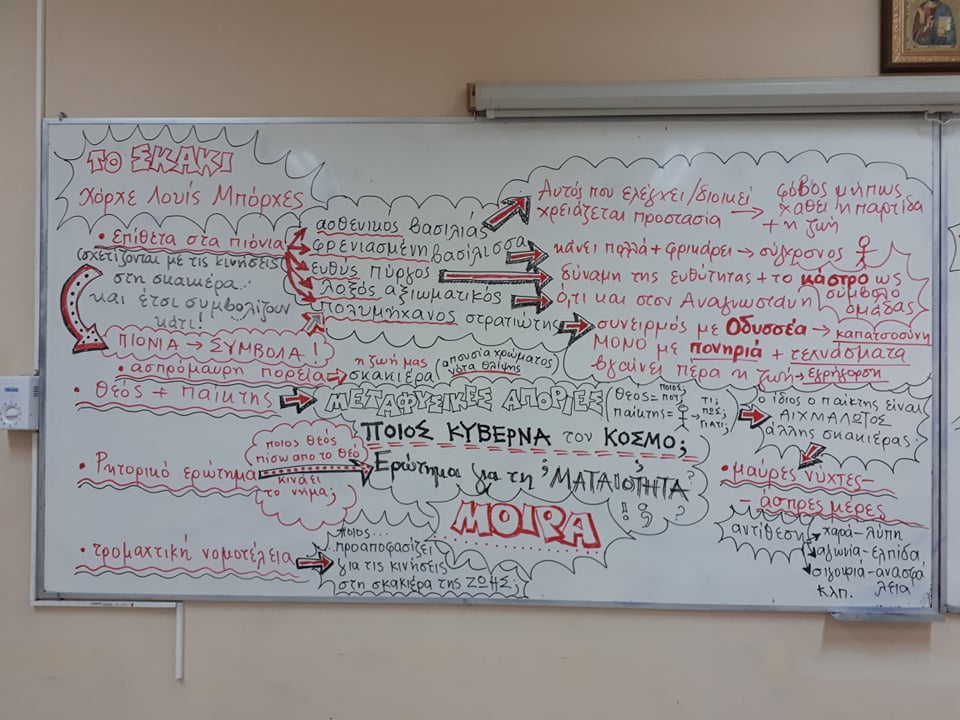 ΤΟ ΣΚΑΚΙ
Χόρχε Λουίς Μπόρχες
• Επίθετα στα πιόνια
σχετίζονται με τις κινήσεις
στη σκακιέρα...
και έτσι συμβολίζουν
κάτι!
ΠΙΟΝΙΑ → ΣΥΜΒΟΛΑ!
ασθενικός βασιλιάς
φρενιασμένη βασίλισσα
ευθύς πύργος
λοξός αξιωματικός
πολυμήχανος στρατιώτης
Αυτός που ελέγχει/διοικεί
χρειάζεται προστασία →
φόβος μήπως
χαθεί η παρτίδα
+ η ζωή
κάνει πολλά + φρικάρει → σύγχρονος
δύναμη της ευθύτητας + το κάστρο ως
σύμβολο
ομάδας
ό,τι και στον Αναγνωστάκη
συνειρμός με Οδυσσέα → καπατσοσύνη
ΜΟΝΟ με πονηριά + τεχνάσματα
βγαίνει πέρα η ζωή → εγρήγορση
• ασπρόμαυρη πορεία →
η ζωή μας
σκακιέρα
απουσία χρώματος
νότα θλίψης
• Θεός + Παίκτης
ΜΕΤΑΦΥΣΙΚΕΣ ΑΠΟΡΙΕΣ
Θεός = ποιος; που;
παίκτης = → τι; πώς; γιατί;
ο ίδιος ο παίκτης είναι
ΑΙΧΜΑΛΩΤΟΣ
άλλης σκακιέρας
ΠΟΙΟΣ ΚΥΒΕΡΝΑ τον ΚΟΣΜΟ;
• Ρητορικό ερώτημα
ποιος Θεός
πίσω απο το Θεό
κινάει
το νήμα;
Ερώτημα για τη ΜΑΤΑΙΟΤΗΤΑ
; ; ? ! ; ?
• μαύρες νύχτες –
– άσπρες μέρες
ΜΟΙΡΑ
αντίθεση
χαρά – λύπη
αγωνία – ελπίδα
σιγουριά – ανασφά
λεια
κλπ.
• τρομαχτική νομοτέλεια
ποιος...
προαποφασίζει
για τις κινήσεις
στη σκακιέρα της ΖΩΗΣ;